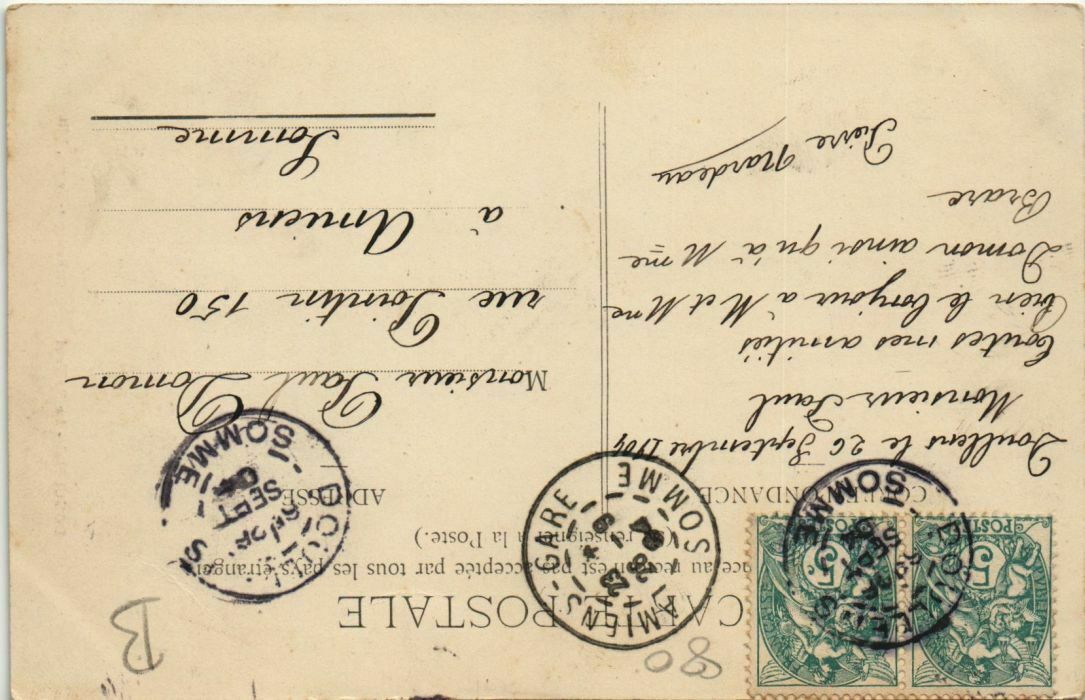 CARTE POSTALE
Tous les pays étrangers
(Se renseigner à la Poste.)
CORRESPONDANCE
ADRESSE
Doullens le 26 Septembre 1904
Monsieur Paul
toutes mes amitiés
bien le bonjour à M et Mme
Domon ainsi qu'à Mme
Brare
Pierre Nardeau
Monsieur Paul Domon
rue Pointin 150
à Amiens
Somme
DOULLENS
SEPT
04
SOMME
AMIENS-GARE
SOMME
DOULLENS
SOMME
5
5
POSTES
80
B